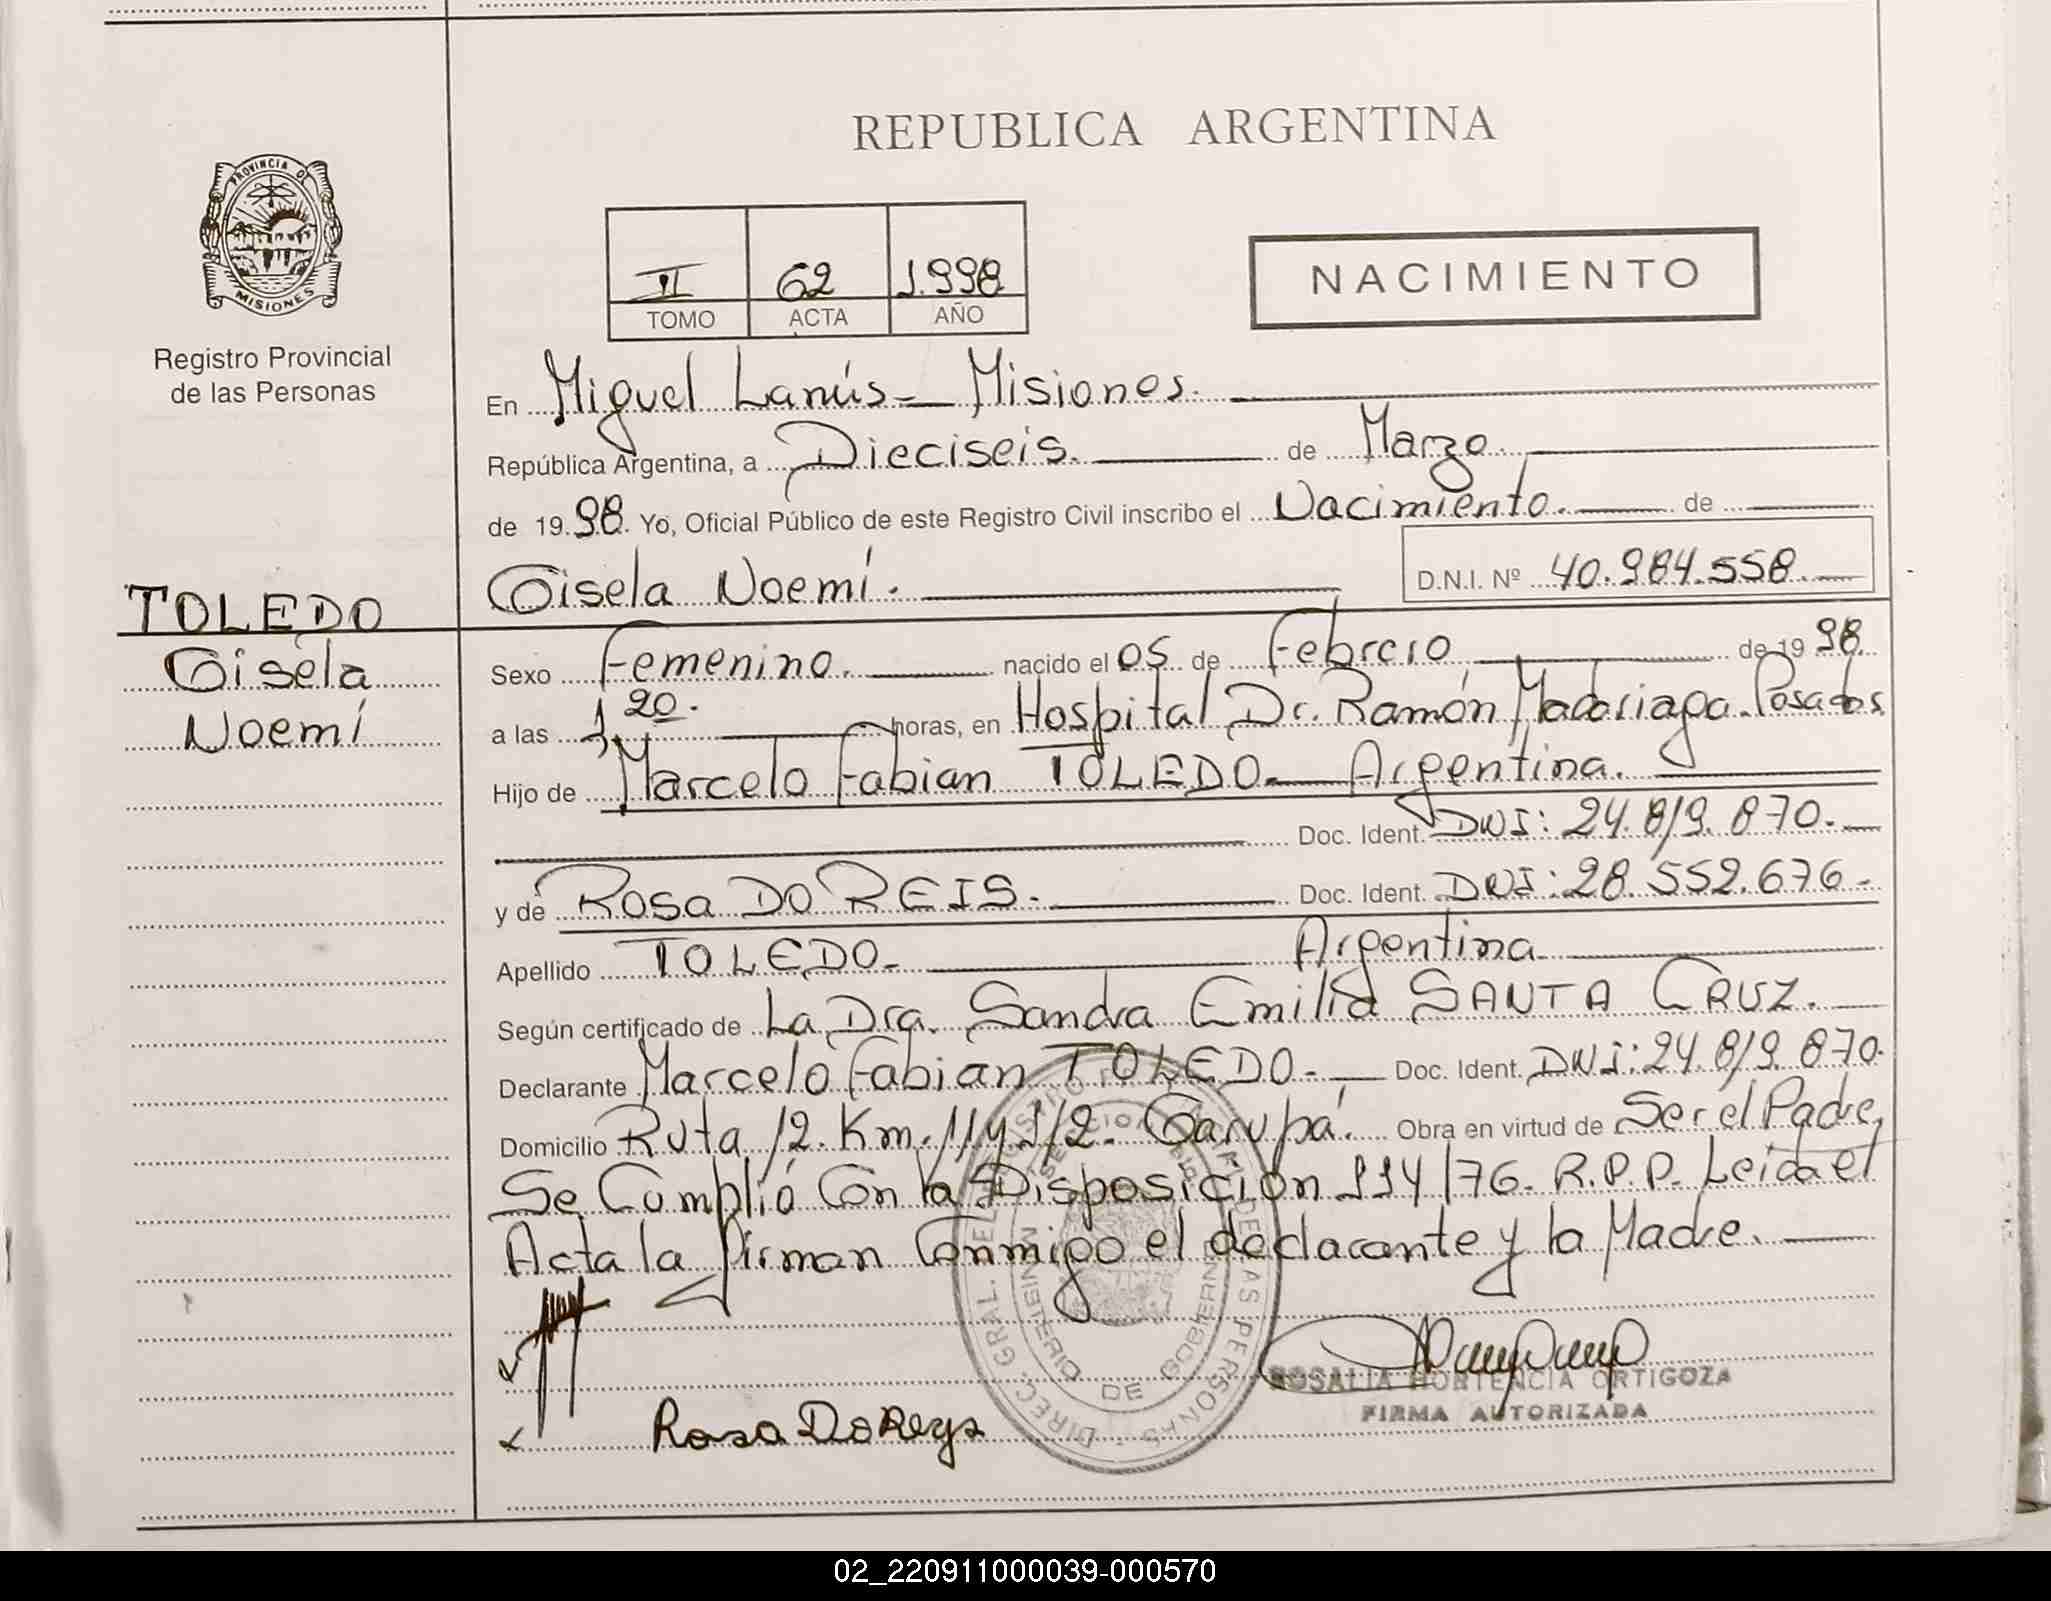 REPUBLICA ARGENTINA
PROVINCIA DE
MISIONES
Registro Provincial
de las Personas
II 62 1.998
TOMO ACTA AÑO
NACIMIENTO
En Miguel Lanús - Misiones.
República Argentina, a Dieciseis. de Marzo.
de 19 98. Yo, Oficial Público de este Registro Civil inscribo el Nacimiento. de
Gisela Noemí. D.N.I. Nº 40.984.558.
TOLEDO
Gisela
Noemí
Sexo Femenino. nacido el 05 de Febrero de 19 98
a las 1 20. horas, en Hospital Dr. Ramón Madariaga. Posadas
Hijo de Marcelo Fabian TOLEDO - Argentina.
Doc. Ident. DNI: 24.819.870.
y de Rosa DO REIS. Doc. Ident. DNI: 28.552.676.
Apellido TOLEDO. Argentina
Según certificado de La Dra. Sandra Emilia SANTA CRUZ.
Declarante Marcelo Fabian TOLEDO. Doc. Ident. DNI: 24.819.870.
Domicilio Ruta 12. Km. 11 y 1/2. Garupá. Obra en virtud de Ser el Padre,
Se Cumplió Con la Disposición 114/76. R.P.P. Leida el
Acta la firman Conmigo el declarante y la Madre.
Rosa Do Reys
ROSALIA HORTENCIA ORTIGOZA
FIRMA AUTORIZADA
02_220911000039-000570